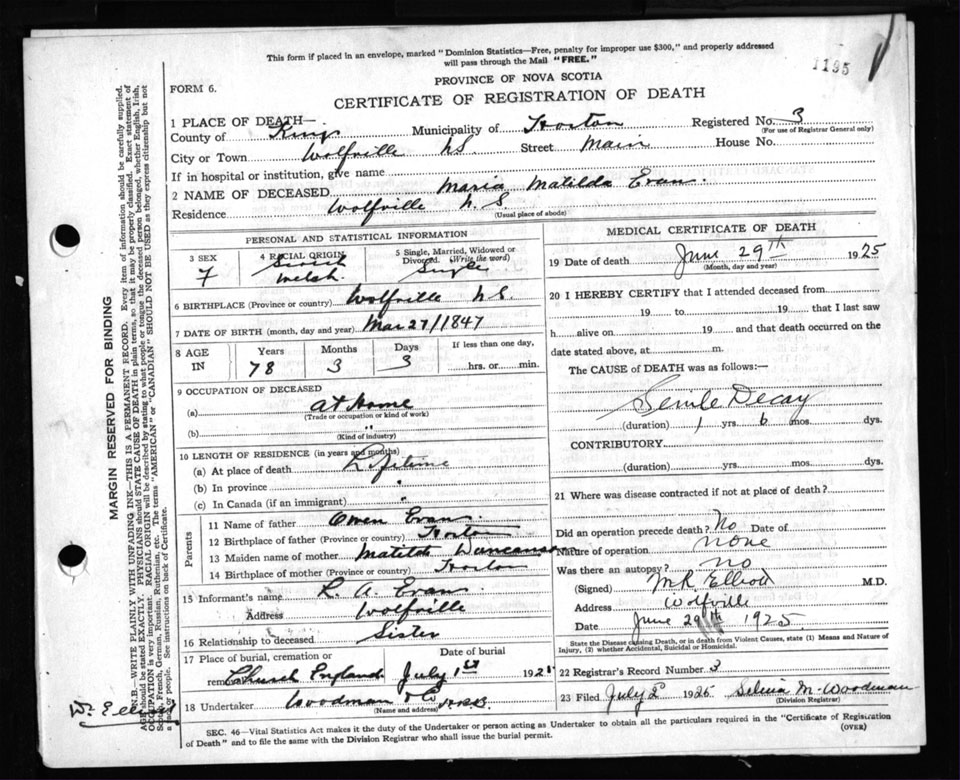 This form if placed in an envelope, marked "Dominion Statistics—Free, penalty for improper use $300," and properly addressed
will pass through the Mail "FREE."
1195
PROVINCE OF NOVA SCOTIA
FORM 6.
CERTIFICATE OF REGISTRATION OF DEATH
1 PLACE OF DEATH—
Registered No. 3
(For use of Registrar General only)
County of Kings Municipality of Horton
City or Town Wolfville NS Street Main House No.
If in hospital or institution, give name
2 NAME OF DECEASED Maria Matilda Evans
Residence Wolfville N.S.
(Usual place of abode)
PERSONAL AND STATISTICAL INFORMATION
3 SEX
F
4 RACIAL ORIGIN
Welsh
5 Single, Married, Widowed or
Divorced. (Write the word)
Single
6 BIRTHPLACE (Province or country) Wolfville NS.
7 DATE OF BIRTH (month, day and year) Mar 27/1847
8 AGE
IN
Years
78
Months
3
Days
3
If less than one day,
hrs. or min.
9 OCCUPATION OF DECEASED
(a) at home
(Trade or occupation or kind of work)
(b) "
(Kind of industry)
10 LENGTH OF RESIDENCE (in years and months)
(a) At place of death Lifetime
(b) In province "
(c) In Canada (if an immigrant) "
Parents
11 Name of father Owen Evans
12 Birthplace of father (Province or country) Horton
13 Maiden name of mother Matilda Duncanson
14 Birthplace of mother (Province or country) Horton
15 Informant's name R. A. Evans
Address Wolfville
16 Relationship to deceased Sister
17 Place of burial, cremation or
removal Church England
Date of burial
July 1st 1925
18 Undertaker Woodman & Co
(Name and address)
MEDICAL CERTIFICATE OF DEATH
19 Date of death June 29th 1925
(Month, day and year)
20 I HEREBY CERTIFY that I attended deceased from
19 to 19 that I last saw
h alive on 19 and that death occurred on the
date stated above, at m.
The CAUSE of DEATH was as follows:—
Senile Decay
(duration) 1 yrs. 6 mos. dys.
CONTRIBUTORY
(duration) yrs. mos. dys.
21 Where was disease contracted if not at place of death?
Did an operation precede death? No Date of
Nature of operation none
Was there an autopsy? no
(Signed) M R Elliott M.D.
Address Wolfville
Date June 29th 1925.
State the Disease causing Death, or in death from Violent Causes, state (1) Means and Nature of
Injury, (2) whether Accidental, Suicidal or Homicidal.
22 Registrar's Record Number 3
23 Filed July 2 1925 Selina M. Woodman
(Division Registrar)
SEC. 46—Vital Statistics Act makes it the duty of the Undertaker or person acting as Undertaker to obtain all the particulars required in the "Certificate of Registration
of Death" and to file the same with the Division Registrar who shall issue the burial permit.
(OVER)
MARGIN RESERVED FOR BINDING
N.B.—WRITE PLAINLY WITH UNFADING INK—THIS IS A PERMANENT RECORD. Every item of information should be carefully supplied.
AGE should be stated EXACTLY. PHYSICIANS should STATE CAUSE OF DEATH in plain terms, so that it may be properly classified. Exact statement of
OCCUPATION is very important. RACIAL ORIGIN will be described by stating to what people or tongue the deceased person belonged, whether English, Irish,
Scotch, French, German, Russian, Ruthenian, etc. The terms "AMERICAN" or "CANADIAN" SHOULD NOT BE USED as they express citizenship but not
a race or people. See instructions on back of Certificate.